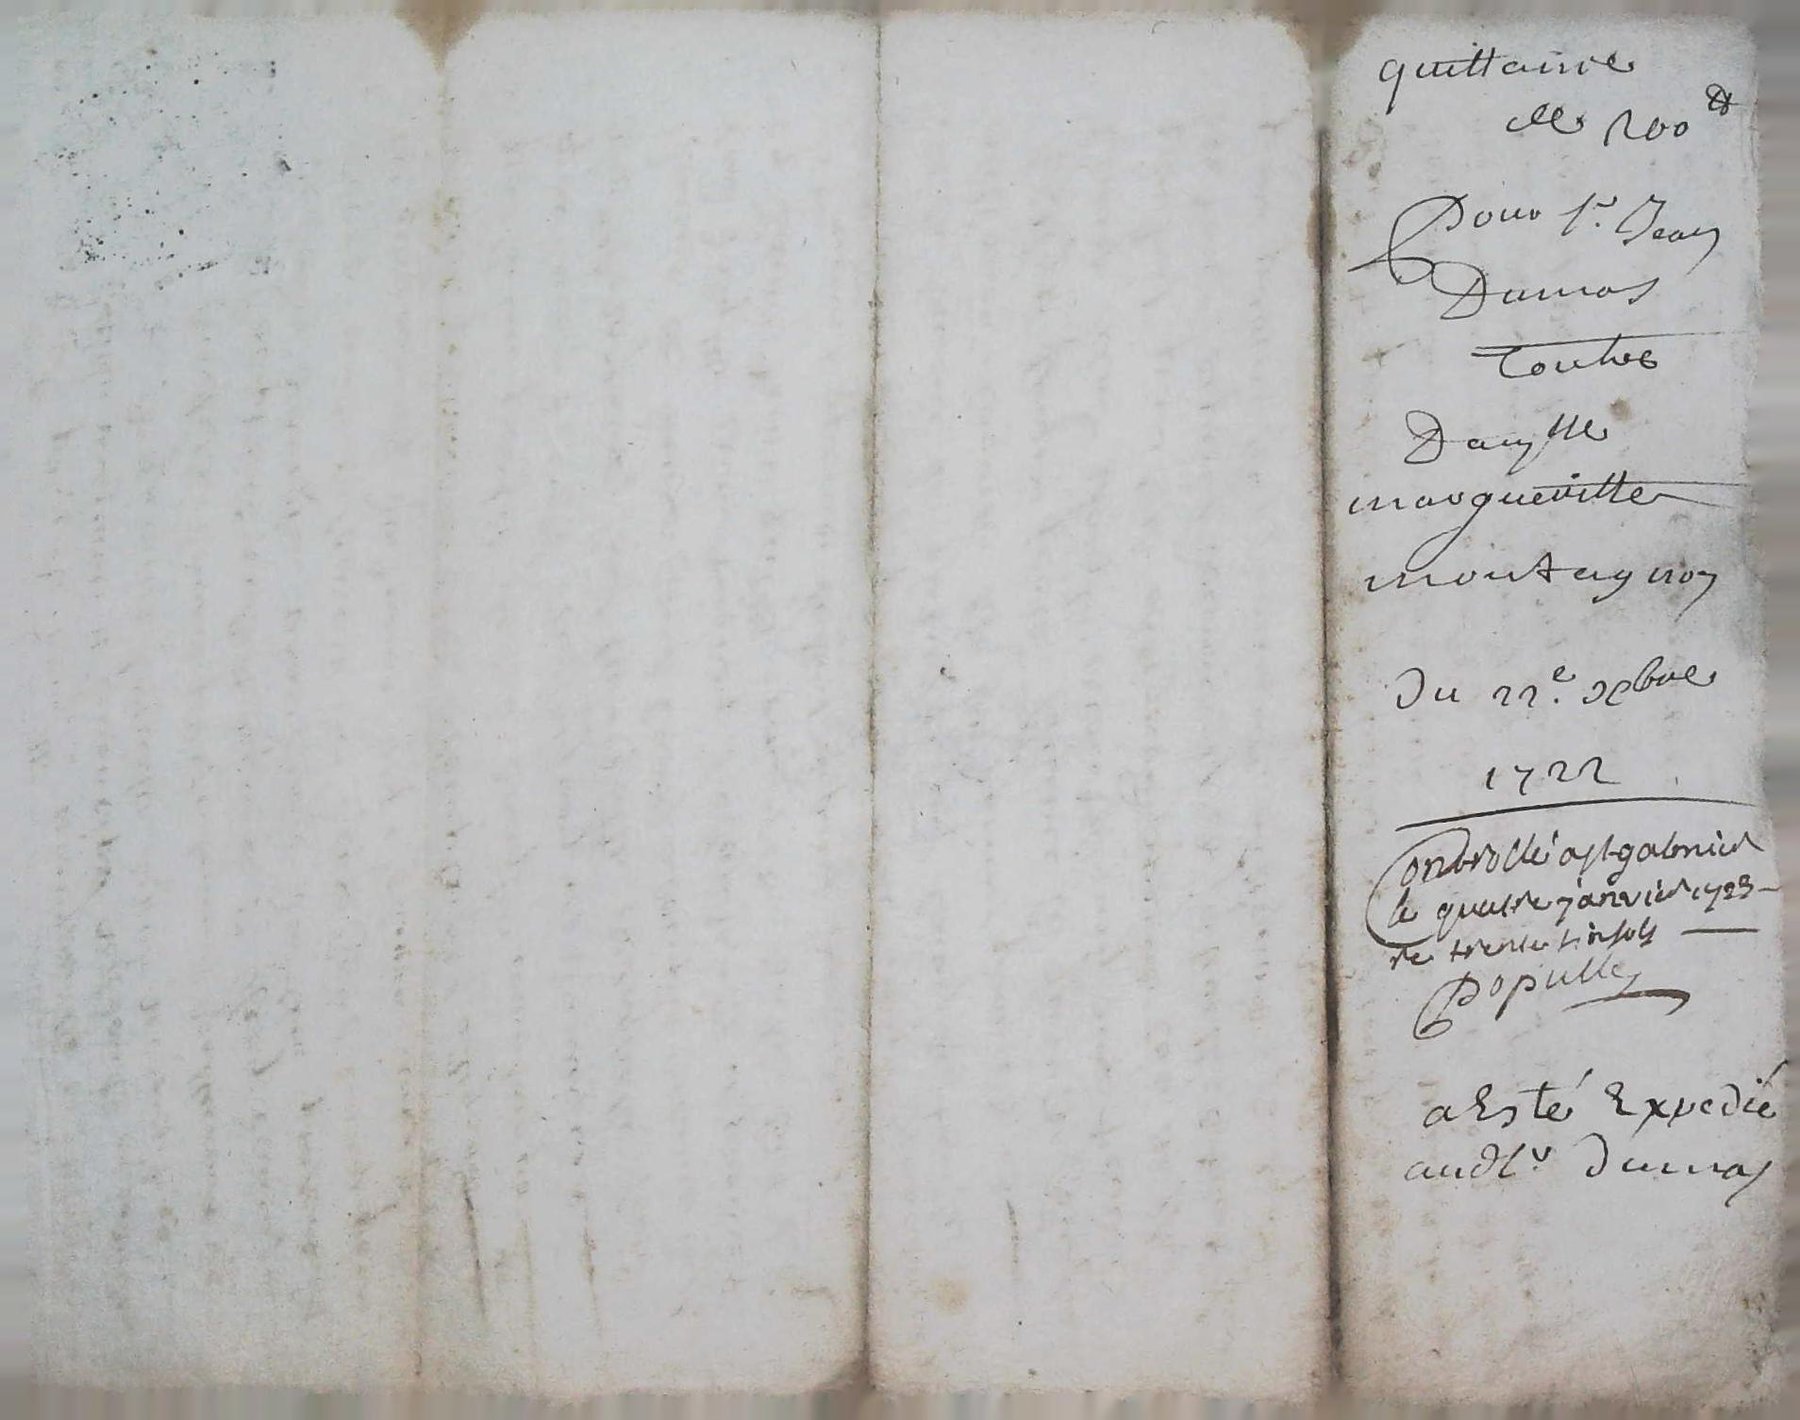 quittance
de 200 ₶
Pour sr. Jean
Dumas
Contre
Damlle
margueritte
montagnon
Du 22e. xbre
1722
Controllé a st galmier
le quatre janvier 1723
re trente six sols
Populle
a Esté Expedié
audt sr Dumas